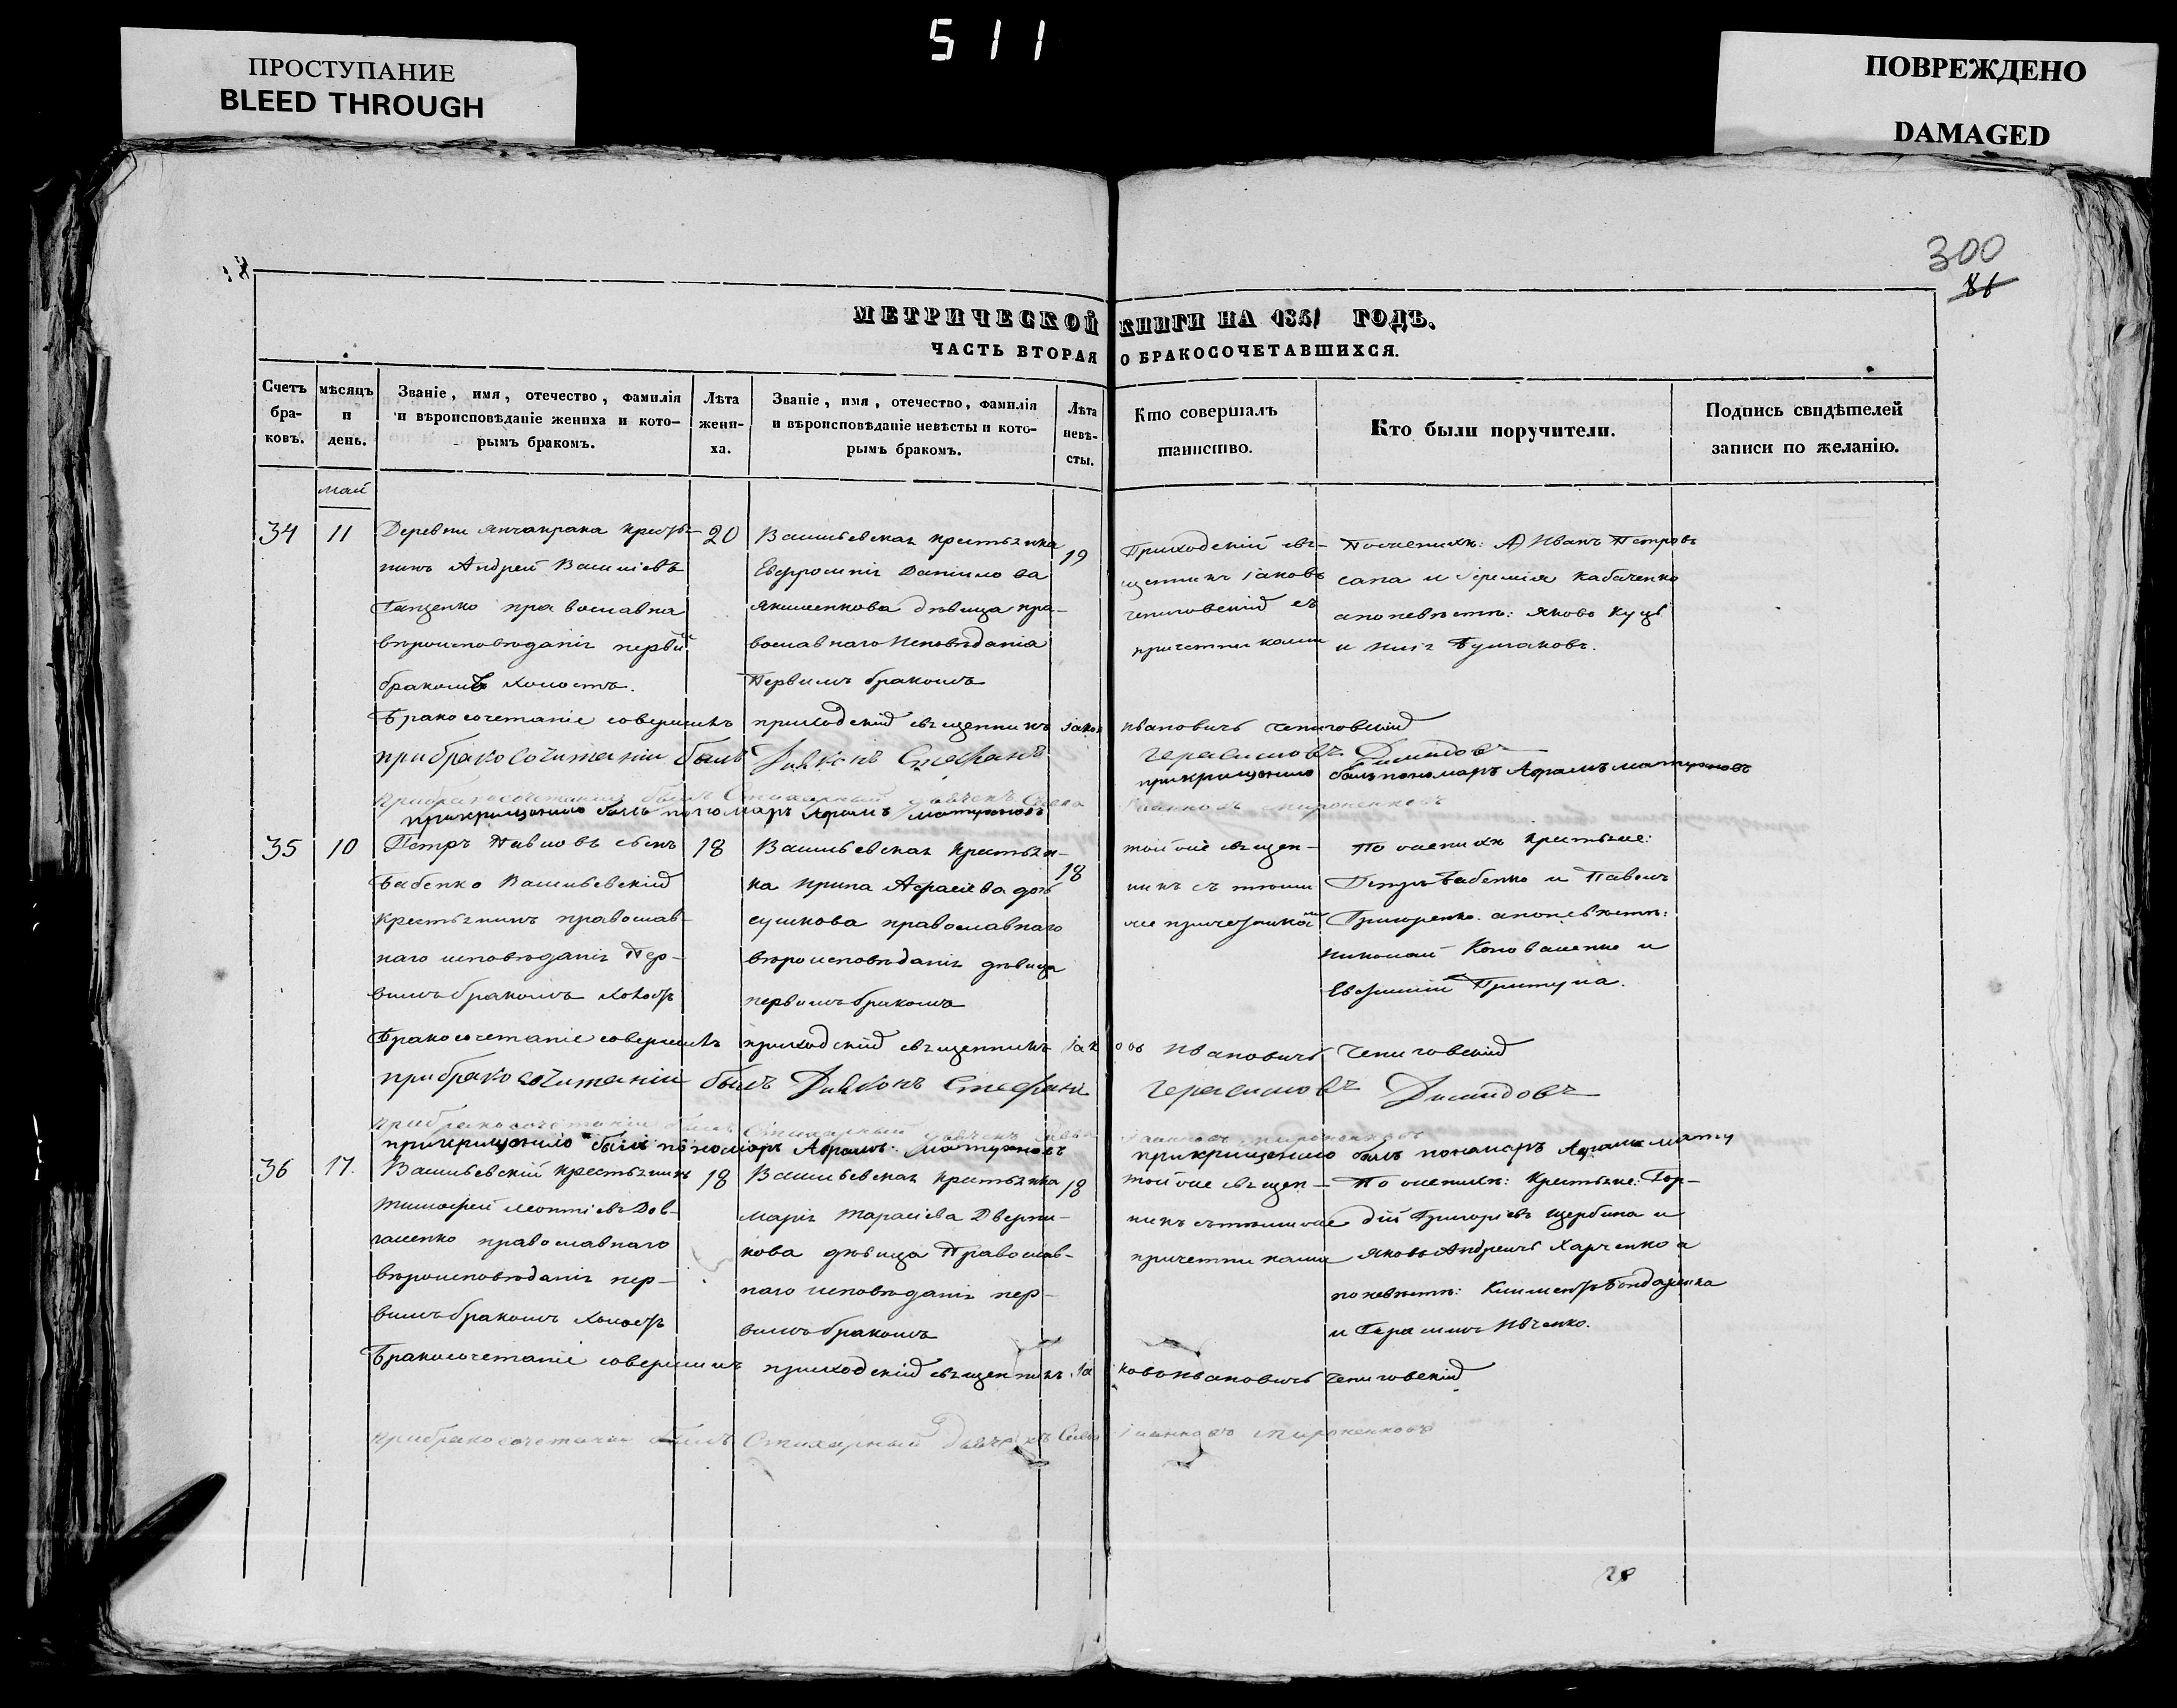 511
ПРОСТУПАНИЕ
BLEED THROUGH
ПОВРЕЖДЕНО
DAMAGED
300
86
МЕТРИЧЕСКОЙ КНИГИ НА 1851 ГОДЪ.
ЧАСТЬ ВТОРАЯ О БРАКОСОЧЕТАВШИХСЯ.
Счетъ бра- ковъ.
мѣсяцъ и день.
Званіе, имя, отечество, фамилія и вѣроисповѣданіе жениха и кото- рымъ бракомъ.
Лѣта жени- ха.
Званіе, имя, отечество, фамилія и вѣроисповѣданіе невѣсты и кото- рымъ бракомъ.
Лѣта невѣ- сты.
Кто совершалъ таинство.
Кто были поручители.
Подпись свидѣтелей записи по желанію.
май
34
11
Деревни Янчакрака кресть-
нинъ Андрей Василіевъ
православна
вѣроисповѣданіг первый
бракомъ холостъ.
20
Васильевская крестьянка
Евфросиніг Даніилова
Якименкова дѣвица пра-
вославнаго исповѣданіа
Первимъ бракомъ
19
Приходскій свѣ-
щенникъ Іаковъ
Чепиговскій съ
причетниками
По женихѣ: А) Иванъ Петровъ
сапа и Іеремія Кабаченко
а по невѣстѣ: Яковъ Куцъ
и Бутаковъ.
Бракосочетаніе совершилъ приходскій свѣщенникъ Іаков Ивановичъ Чепиговскій
при бракосочитаніи былъ Діяконъ Стефанъ Герасимовъ Димидовъ
былъ пономаръ Афрамъ
35
10
Петръ Павловъ сынъ
Бабенко Васильевскій
крестьянинъ православ-
наго исповѣданіг Пер-
вимъ бракомъ холостъ
18
Васильевская крестьян-
ка Ирина Афрасіева дочь
сушкова православнаго
вѣроисповѣданіг дѣвица
первимъ бракомъ
18
той же свѣщен-
никъ съ тѣми
же причетника
По женихѣ крестьяне:
Петръ Бабенко и Павелъ
Григоренко. а по невѣстѣ:
Николай Коноваленко и
Евфимій Притула.
Бракосочетаніе совершилъ приходскій свѣщенникъ Іаковъ Ивановичъ Чепиговскій
при бракосочитаніи былъ Діяконъ Стефанъ Герасимовъ Димидовъ
былъ пономаръ Афрамъ
36
17.
Васильевскій крестьянинъ
Тимофей Леонтіевъ Дов-
галенко православнаго
вѣроисповѣданіг пер-
вимъ бракомъ холостъ
18
Васильевская крестьянка
Маріг Тарасіева Дверни-
кова дѣвица Православ-
наго исповѣданіг пер-
вимъ бракомъ
18
той же свѣщен-
никъ съ тѣми же
причетниками
По женихѣ: крестьяне: Гор-
дій Григоріевъ Щербина и
Яковъ Андреичъ Харченко а
по невѣстѣ: Климентъ
и Герасимъ Ивченко.
Бракосочетаніе совершилъ приходскій свѣщенникъ Іаковъ Ивановичъ Чепиговскій
при бракосочетаніи былъ Стихарный